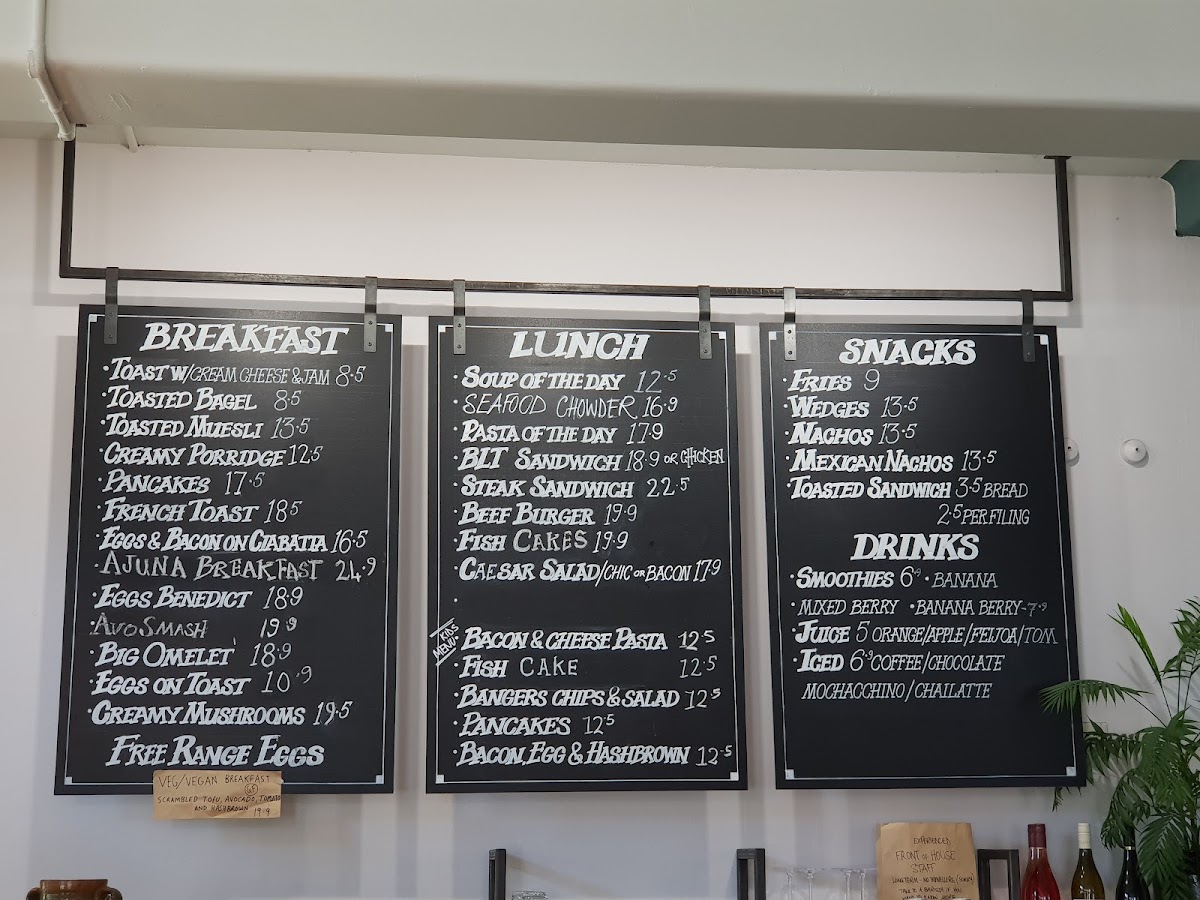 BREAKFAST
·TOAST W/CREAM CHEESE & JAM 8·5
·TOASTED BAGEL 8·5
·TOASTED MUESLI 13·5
·CREAMY PORRIDGE 12·5
·PANCAKES 17·5
·FRENCH TOAST 18·5
·EGGS & BACON ON CIABATTA 16·5
·AJUNA BREAKFAST 24·9
·EGGS BENEDICT 18·9
·AVO SMASH 19·9
·BIG OMELET 18·9
·EGGS ON TOAST 10·9
·CREAMY MUSHROOMS 19·5
FREE RANGE EGGS
VEG/VEGAN BREAKFAST
GF
SCRAMBLED TOFU, AVOCADO, TOMATO
AND HASHBROWN 19·9
LUNCH
·SOUP OF THE DAY 12·5
·SEAFOOD CHOWDER 16·9
·PASTA OF THE DAY 17·9
·BLT SANDWICH 18·9 OR CHICKEN
·STEAK SANDWICH 22·5
·BEEF BURGER 19·9
·FISH CAKES 19·9
·CAESAR SALAD/CHIC OR BACON 17·9
KIDS MENU·
·BACON & CHEESE PASTA 12·5
·FISH CAKE 12·5
·BANGERS CHIPS & SALAD 12·5
·PANCAKES 12·5
·BACON, EGG & HASHBROWN 12·5
SNACKS
·FRIES 9
·WEDGES 13·5
·NACHOS 13·5
·MEXICAN NACHOS 13·5
·TOASTED SANDWICH 3·5 BREAD
2·5 PER FILING
DRINKS
·SMOOTHIES 6·9 ·BANANA
·MIXED BERRY ·BANANA BERRY-7·9
·JUICE 5 ORANGE/APPLE/FEIJOA/TOM
·ICED 6·9 COFFEE/CHOCOLATE
MOCHACCHINO/CHAILATTE
EXPERIENCED
FRONT OF HOUSE
STAFF